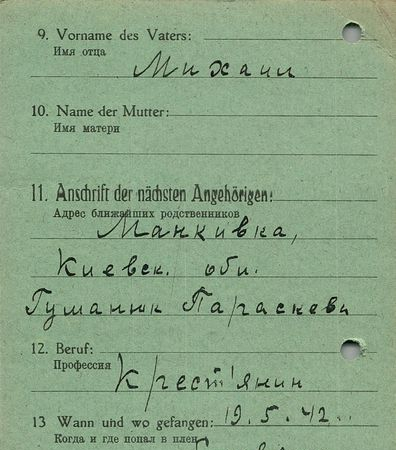 9. Vorname des Vaters:
Имя отца
Михаил
10. Name der Mutter:
Имя матери
11. Anschrift der nächsten Angehörigen:
Адрес ближайших родственников
Манкивка,
Киевск. обл.
Гуманюк Параскева
12. Beruf:
Профессия
Крест'янин
13 Wann und wo gefangen: 19.5.42
Когда и где попал в плен